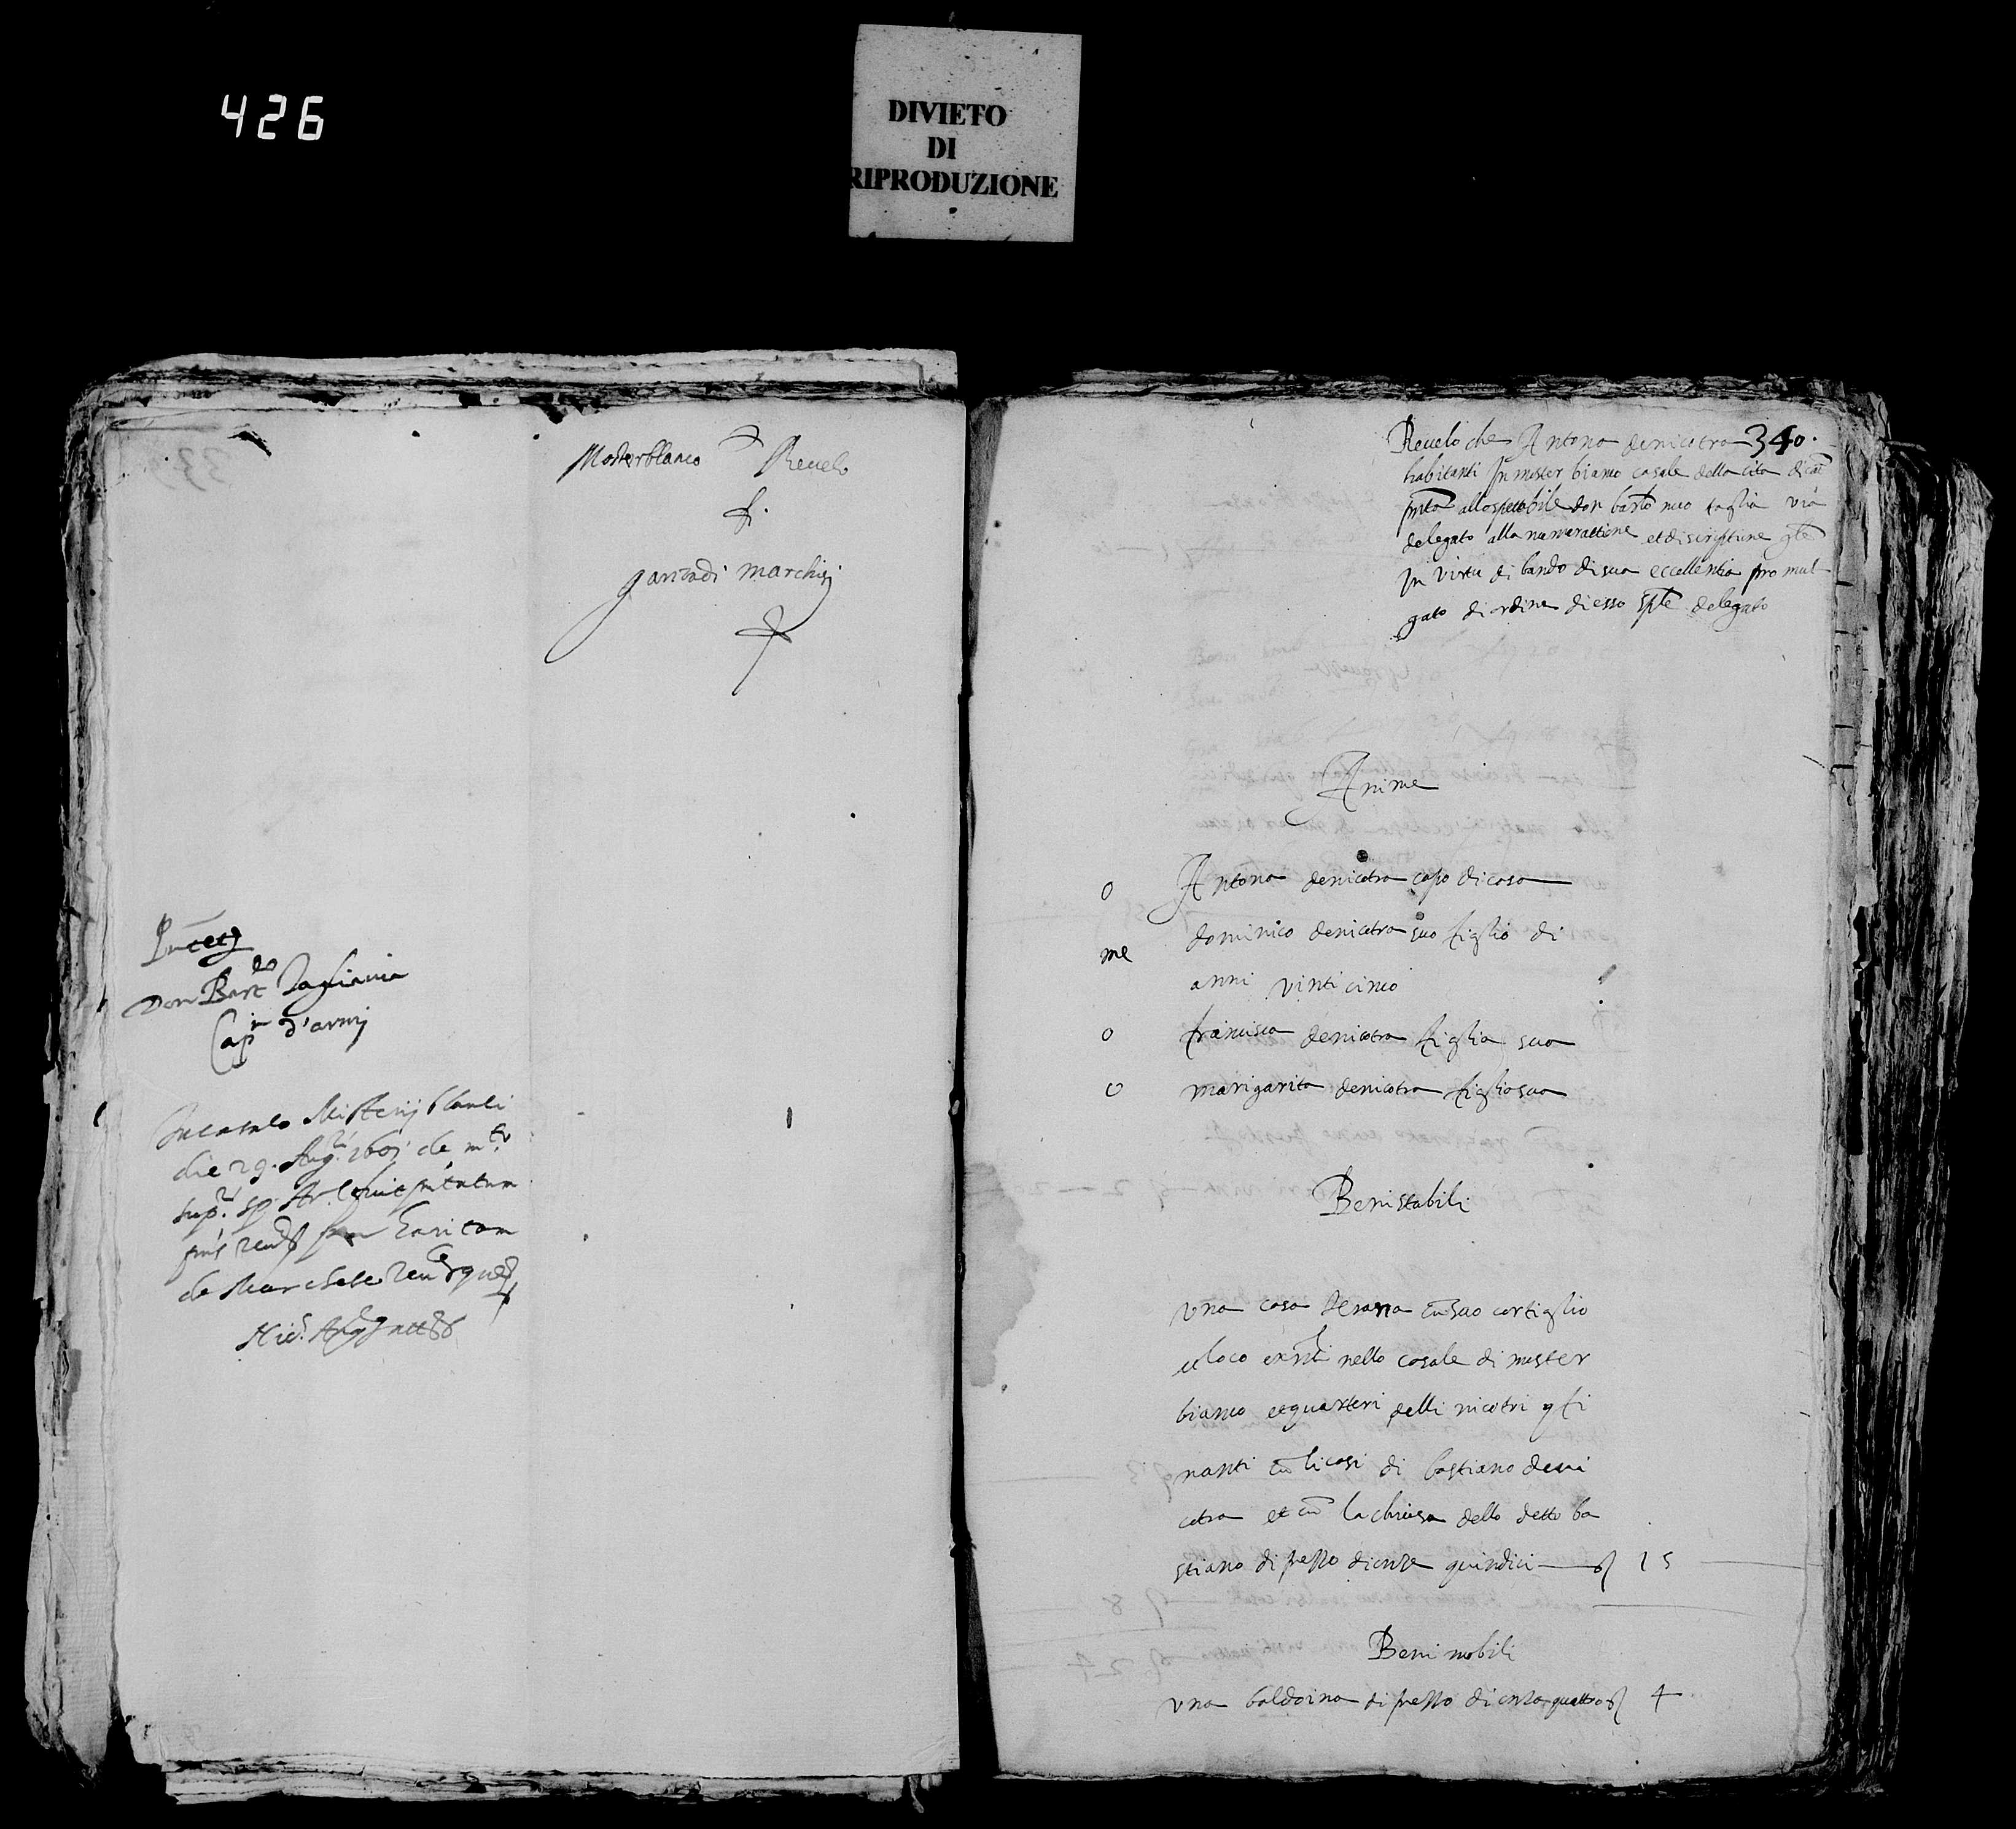 426
DIVIETO
DI
RIPRODUZIONE
Mosterblanco Revelo
di
garita di marchisi
Don Bart.do Tagliavia
Cap.n d'armi
In casale Misterij blanci
die 29. Aug.ti 1607 de m.to
de Marchese
340.
Revelo che Antona de nicotra
habitanti In mister bianco casale della cita di cat.
pnta allo spettabile don barto meo taglia via
delegato alla numerattione et discriptione
In virtu di bando di sua eccellentia pro mul
gato di ordine di esso sp.le delegato
Anime
o Antona de nicotra capo di casa
me dominico de nicotra suo figlio di
anni vinti cinco
o francisca de nicotra figlia sua
o marigarita de nicotra figlia sua
Beni stabili
una casa terrana cu suo cortiglio
e loco nello casale di mister
bianco et quarteri delli nicotri
nanti cu li casi di bastiano de ni
cotra et cu la chiusa dello detto ba
stiano di prezzo di onze quindici 15
Beni mobili
una baldoina di prezzo di onze quattro 4